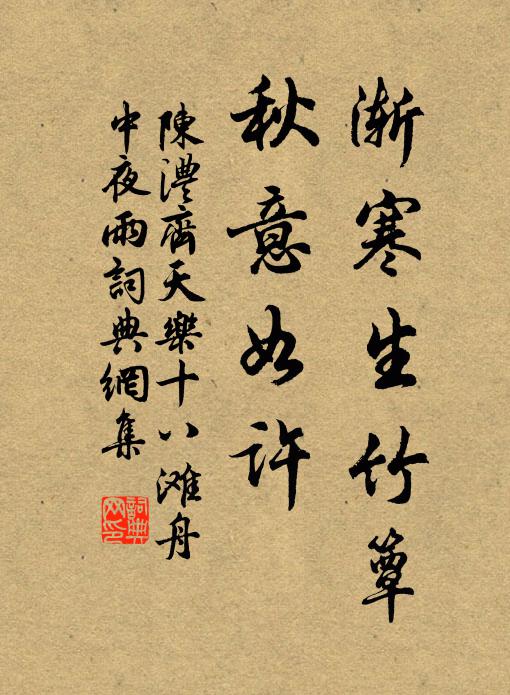 漸寒生竹簟
秋意如許
陳澧齊天樂十八滩舟
中夜雨詞典網集
詞典网印